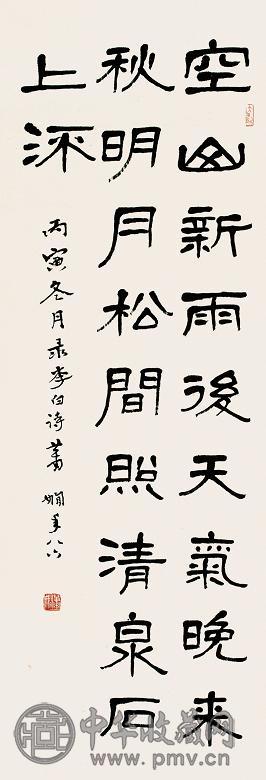 空山新雨後天氣晚来
秋明月松間照清泉石
上流
丙寅冬月录李白诗蕭嫻年八六
中华收藏网
www.pmv.cn